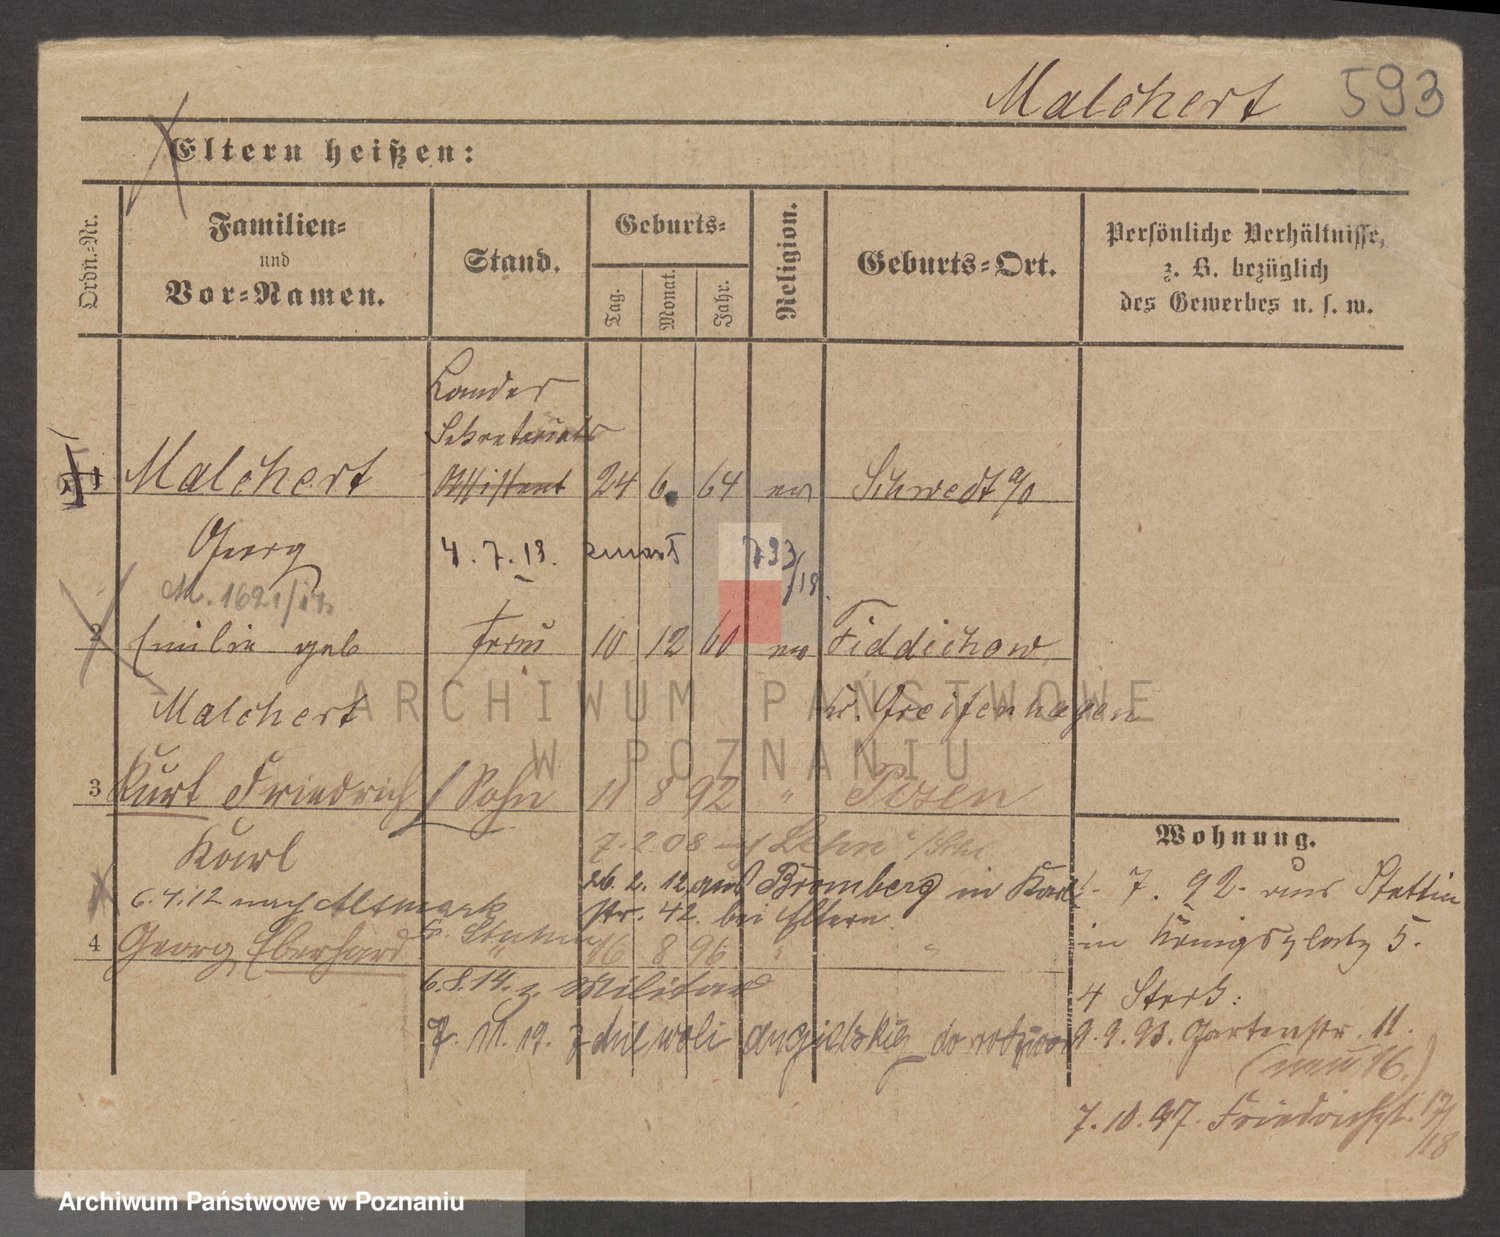 Malchert 593
Eltern heißen:
Ordn.-Nr.
Familien-
und
Vor-Namen.
Stand.
Geburts-
Tag.
Monat.
Jahr.
Religion.
Geburts-Ort.
Persönliche Verhältnisse,
z. B. bezüglich
des Gewerbes u. s. w.
Landes
Sekretariats
1 Malchert Assistent 24 6. 64 ev Schwedt a/o
Georg 4.7.13. zmarł 793/18.
M. 1621/17
2 Emilie geb Frau 10 12 60 ev Fiddichow
Malchert Kr. Greifenhagen
3 Kurt Friedrich Sohn 11 8 92 " Posen
Karl 7.2.08 auf
26.2.12 aus Bromberg in Karl
6.4.12 nach Altmark str. 42. bei Eltern.
4 Georg Eberhard " 16 8 96 " "
6.8.14. z. Militär
7.11.19. z niewoli angielskiej do
Wohnung.
1. 7. 92. aus Stettin
in Königsplatz 5.
4 Stock:
9.9.93. Gartenstr. 11.
(neu 16.)
7.10.97. Friedrichst. 17/18
ARCHIWUM PAŃSTWOWE
W POZNANIU
Archiwum Państwowe w Poznaniu